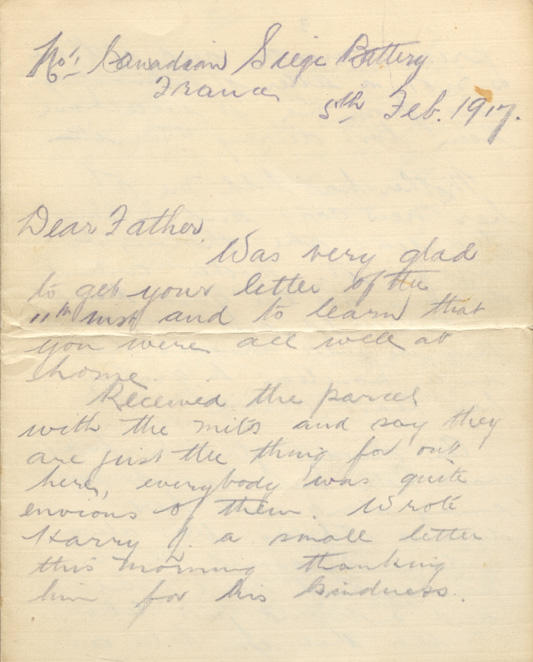 No 1 Canadian Siege Battery
France
5th Feb. 1917.
Dear Father,
Was very glad
to get your letter of the
11th inst and to learn that
you were all well at
home.
Received the parcel
with the mits and say they
are just the thing for out
here, everybody was quite
envious of them. Wrote
Harry J. a small letter
this morning thanking
him for his kindness.